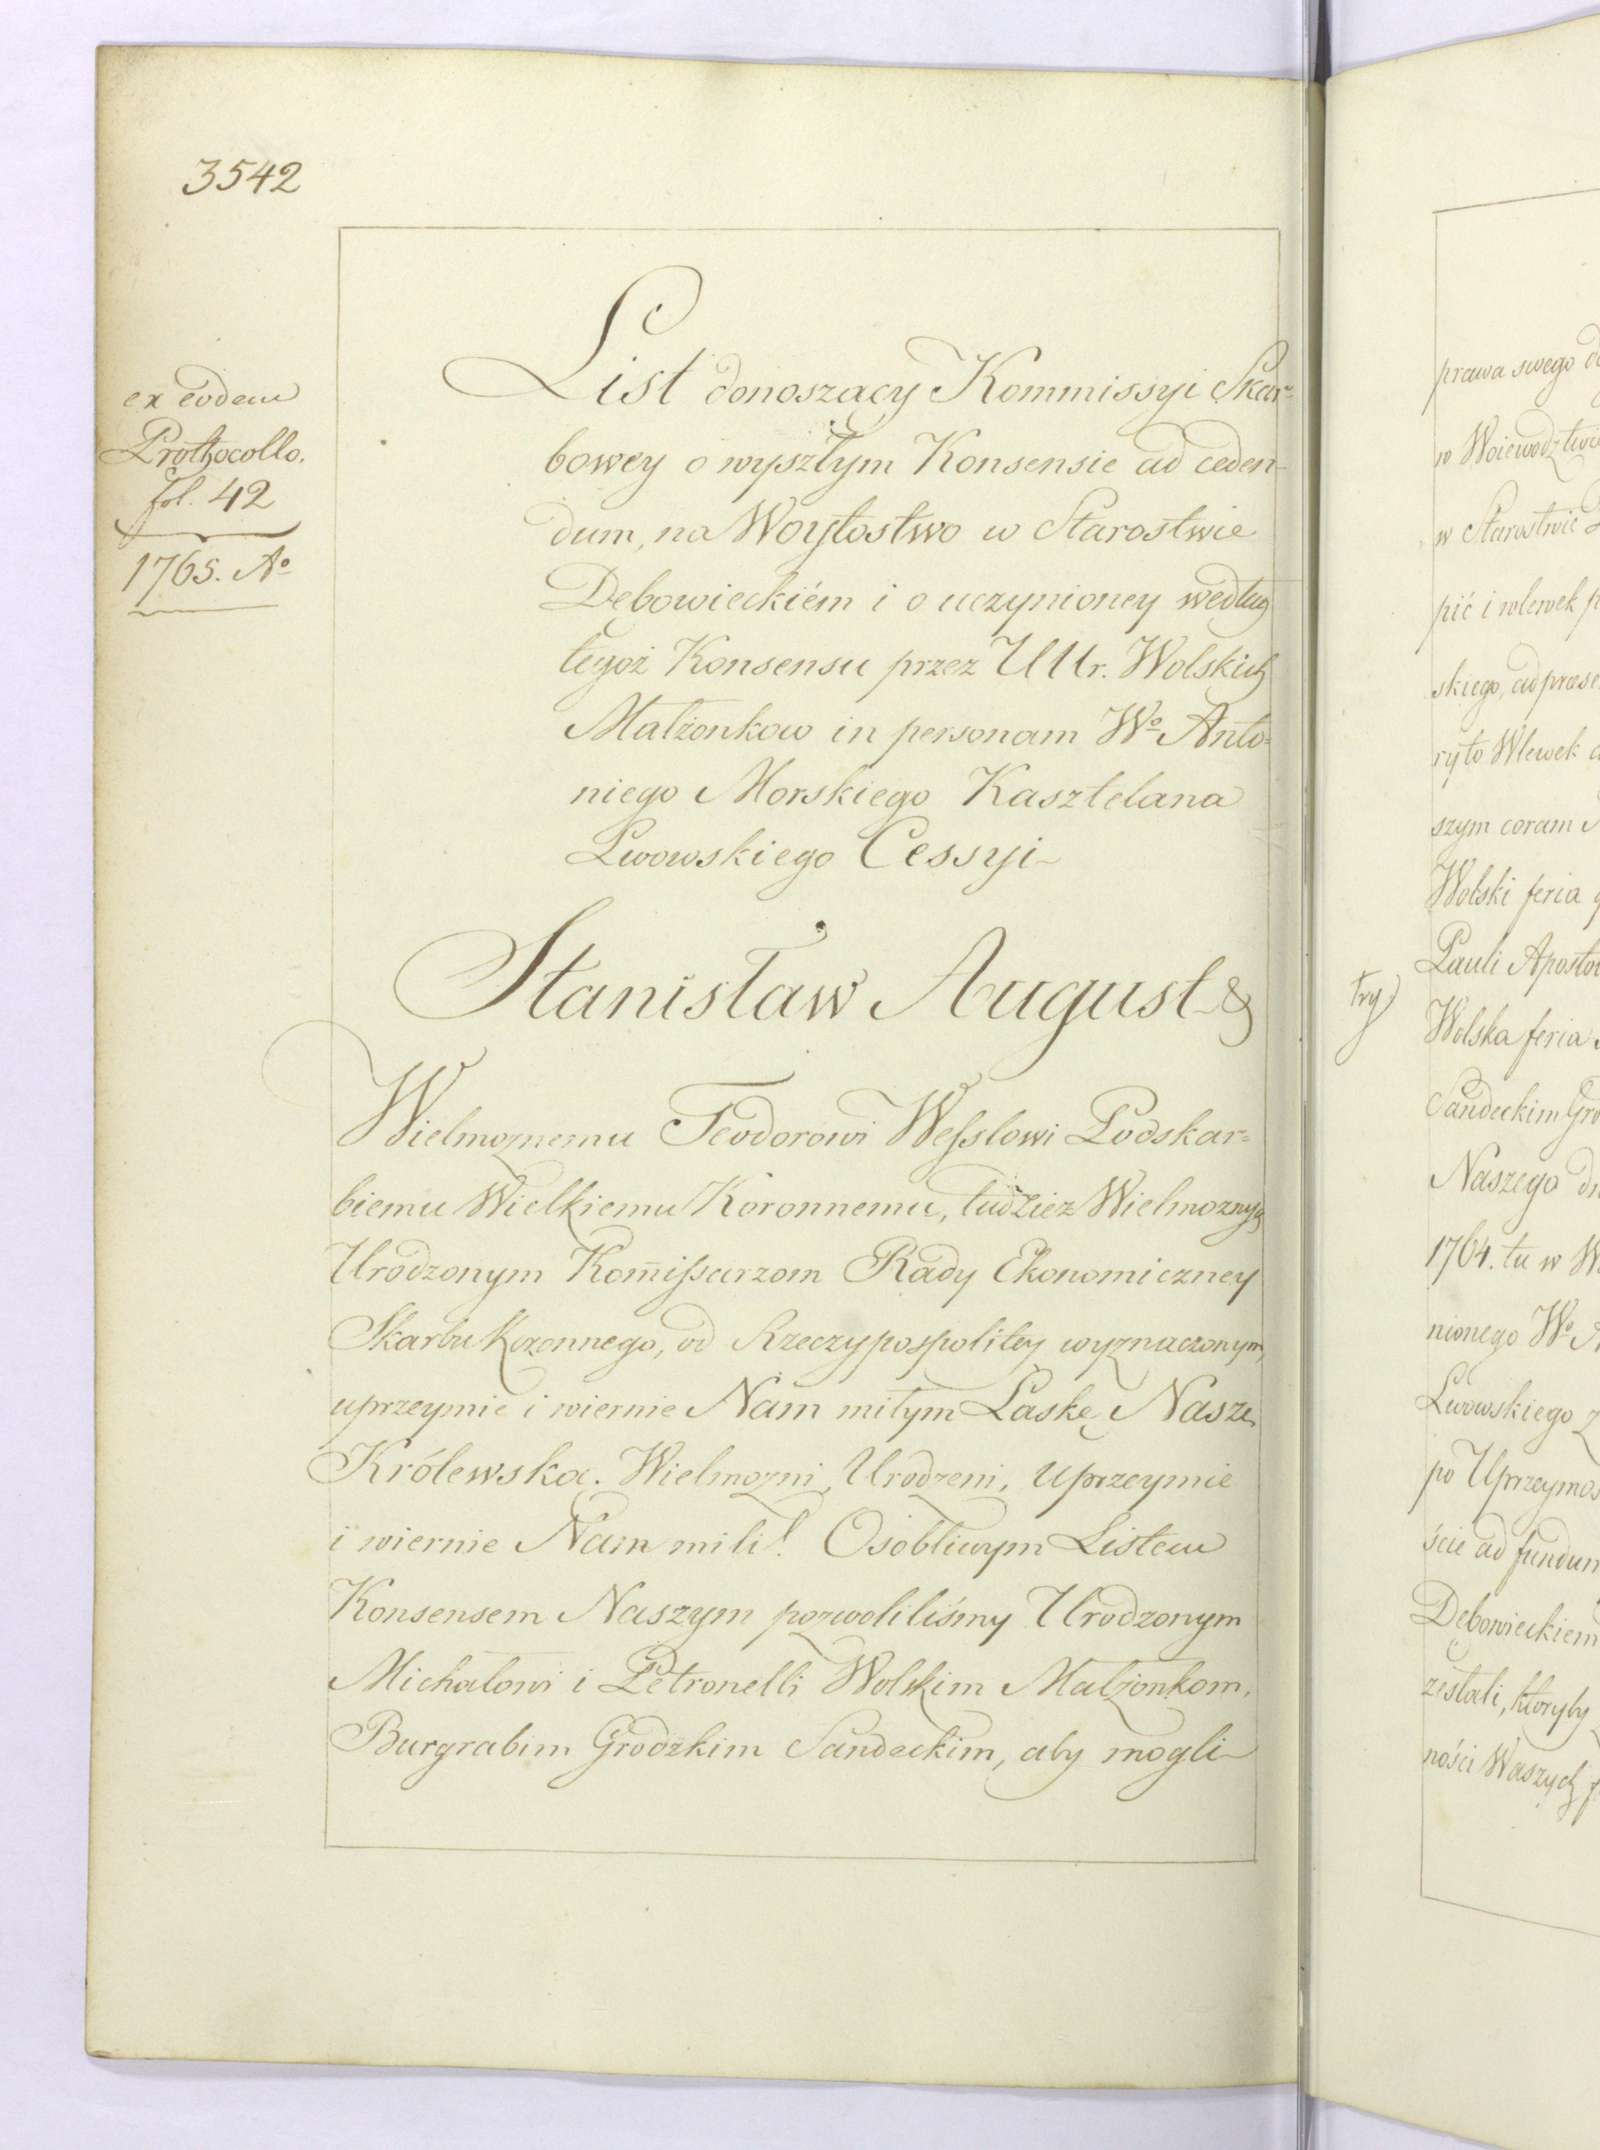 3542
ex eodem
Prothocollo.
fol. 42
1765. Aº
List donoszący Kommissyi Skar-
bowey o wyszłym Konsensie ad ceden-
dum, na Woytostwo w Starostwie
Dębowieckiém i o uczynioney według
tegoż Konsensu przez UUr. Wolskich
Małżonkow in personam Wº Anto-
niego Morskiego Kasztelana
Lwowskiego Cessyi
Stanisław August &
Wielmoznemu Teodorowi Wesslowi Podskar-
biemu Wielkiemu Koronnemu, tudzież Wielmoznych
Urodzonym Kom̄issarzom Rady Ekonomiczney
Skarbu Koronnego, od Rzeczypospolitey wyznaczonym,
uprzeymie i wiernie Nam miłym Łaskę Naszą
Królewska. Wielmozni, Urodzeni, Uprzeymie
i wiernie Nam mili! Osobliwym Listem
Konsensem Naszym pozwoliliśmy Urodzonym
Michałowi i Petronelli Wolskim Małżonkom,
Burgrabim Grodzkim Sandeckim, aby mogli
prawa swego
w Woiewodztwie
w Starostwie
pić i wlewek
skiego, ad
ryto Wlewek
szym coram
Wolski feria
Pauli
try
Wolska feria
Sandeckim
Naszego
1764. tu w
nionego Wº
Lwowskiego
po
ście ad
Dębowieckiem
zestali, ktoryby
ności Waszych